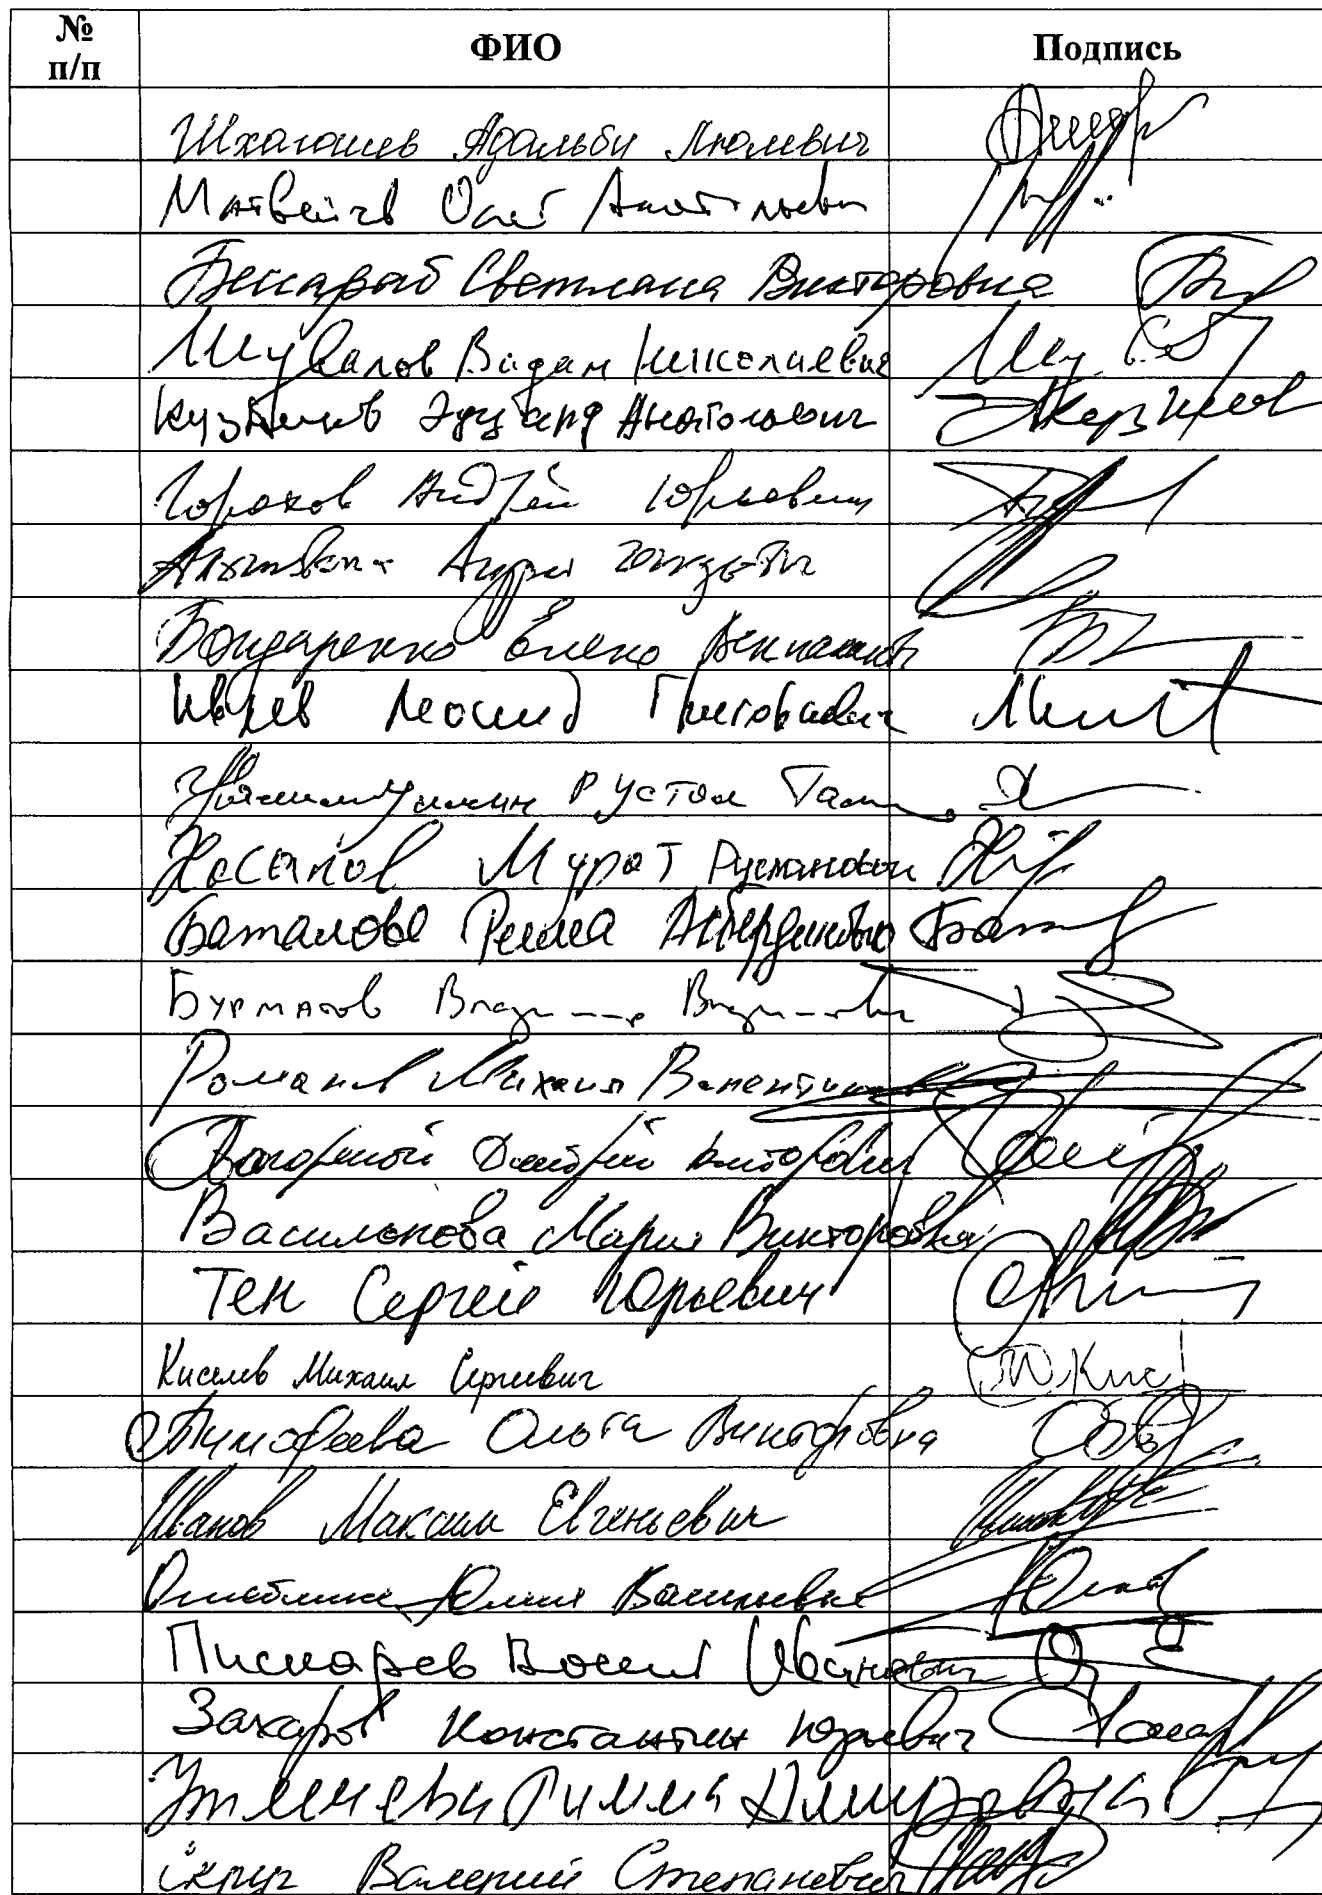 № п/п ФИО Подпись
Шхагошев Адальби Люлевич
Матвейчев Олег Анатольевич
Бессараб Светлана Викторовна
Шувалов Вадим Николаевич
Кузнецов Эдуард Анатольевич
Горохов Андрей Юрьевич
Андрей
Бондаренко Елена Вениаминовна
Ивлев Леонид Григорьевич
Рустам
Хасанов Мурат Русланович
Баталова Римма Акбердиновна
Бурматов Владимир Владимирович
Романов Михаил Валентинович
Погорелый Дмитрий Викторович
Василькова Мария Викторовна
Тен Сергей Юрьевич
Киселев Михаил Сергеевич
Тимофеева Ольга Викторовна
Иванов Максим Евгеньевич
Юлия Васильевна
Пискарев Василий Иванович
Захаров Константин Юрьевич
Утяшева Римма Амировна
Скруг Валерий Степанович